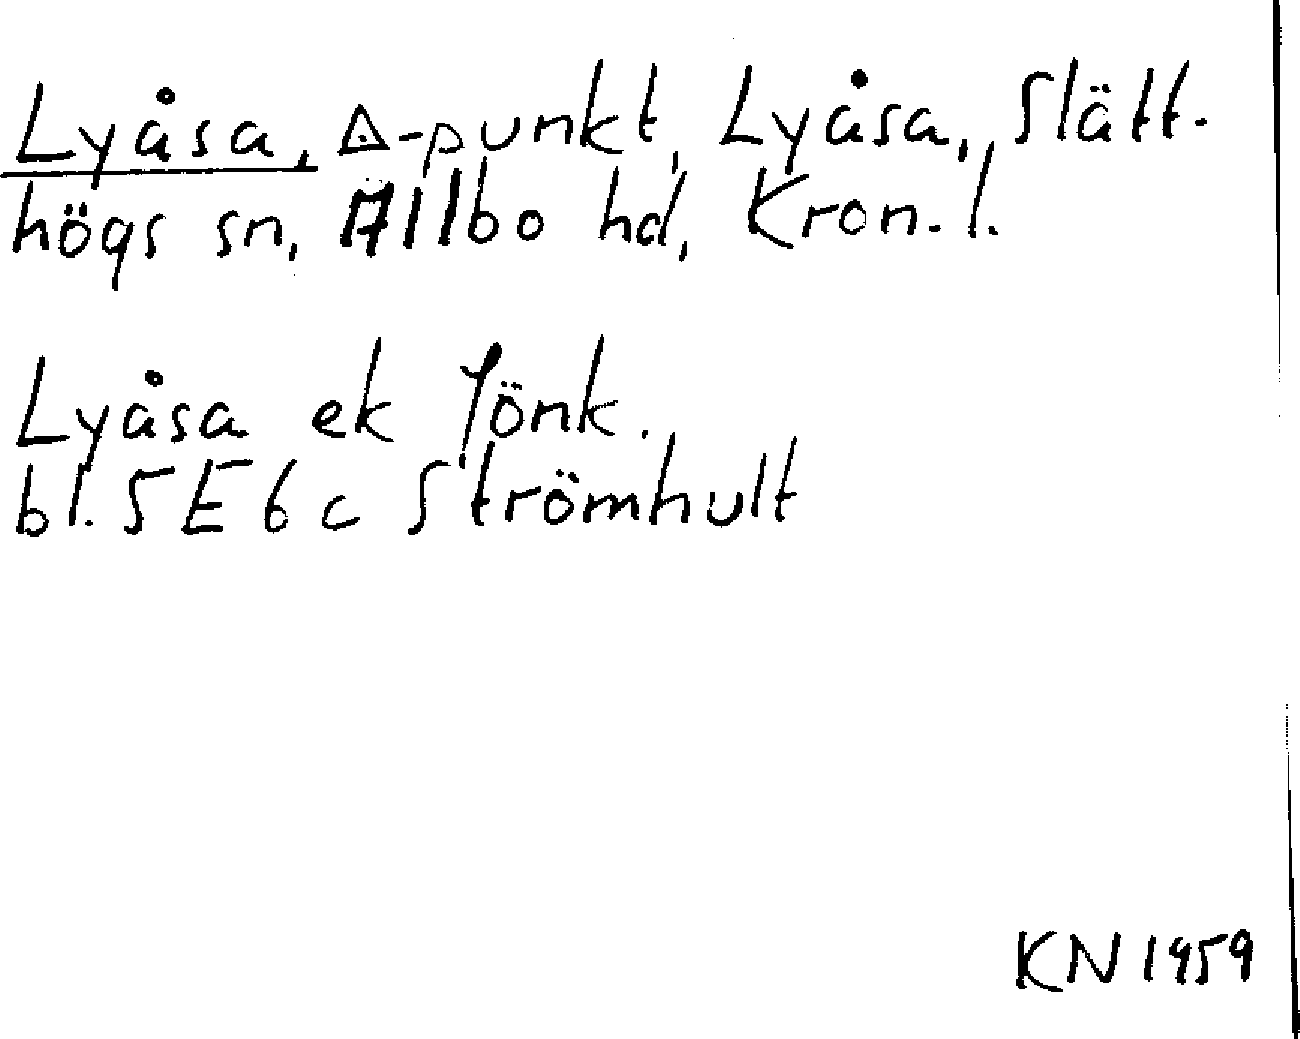 Lyåsa, △-punkt, Lyåsa, Slätt-
högs sn, Allbo hd, Kron. l.
Lyåsa ek Jönk.
bl. 5E6c Strömhult
KN 1959